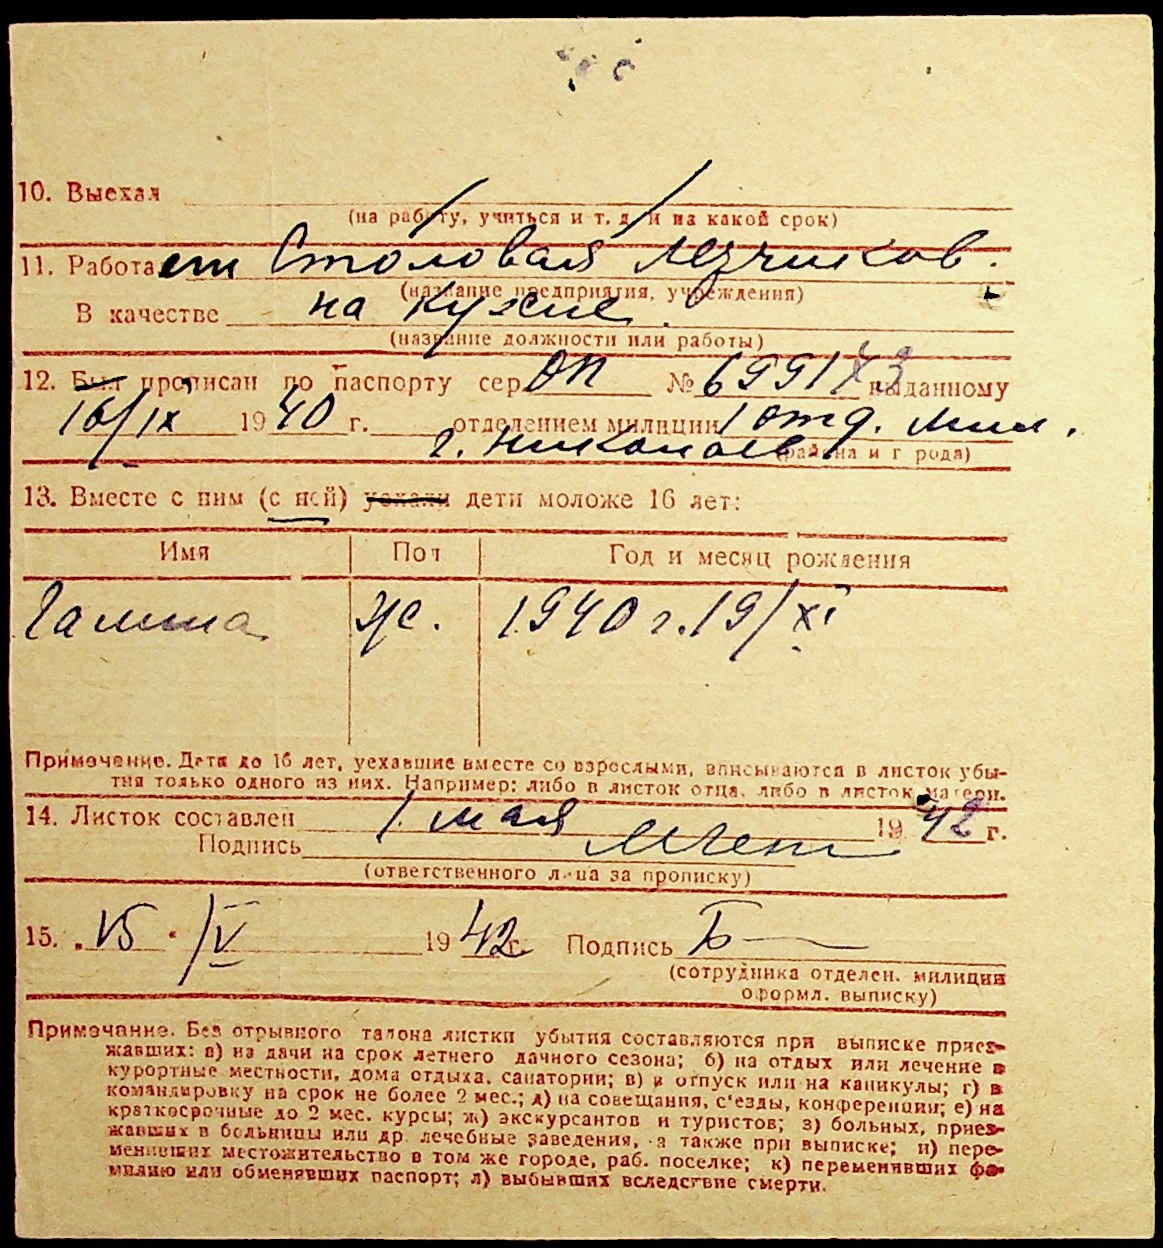 10. Выехал
(на работу, учиться и т. д. и на какой срок)
11. Работает Столовая лётчиков.
(название предприятия, учреждения)
В качестве на кухне.
(название должности или работы)
12. Был прописан по паспорту сер. ОП № 699173 выданному
16/IX 1940 г. отделением милиции 1 отд. мил.
г. Николаев (района и города)
13. Вместе с ним (с ней) уехали дети моложе 16 лет:
Имя Пол Год и месяц рождения
Галина ж. 1940 г. 19/XI
Примечание. Дети до 16 лет, уехавшие вместе со взрослыми, вписываются в листок убы-
тия только одного из них. Например: либо в листок отца, либо в листок матери.
14. Листок составлен 1 мая 1942 г.
Подпись
(ответственного лица за прописку)
15. „ 15 " /V 1942 г. Подпись Б
(сотрудника отделен. милиции
оформл. выписку)
Примечание. Без отрывного талона листки убытия составляются при выписке приез-
жавших: а) на дачи на срок летнего дачного сезона; б) на отдых или лечение в
курортные местности, дома отдыха, санатории; в) в отпуск или на каникулы; г) в
командировку на срок не более 2 мес.; д) на совещания, с'езды, конференции; е) на
краткосрочные до 2 мес. курсы; ж) экскурсантов и туристов; з) больных, приез-
жавших в больницы или др. лечебные заведения, а также при выписке; и) пере-
менивших местожительство в том же городе, раб. поселке; к) переменивших фа-
милию или обменявших паспорт; л) выбывших вследствие смерти.